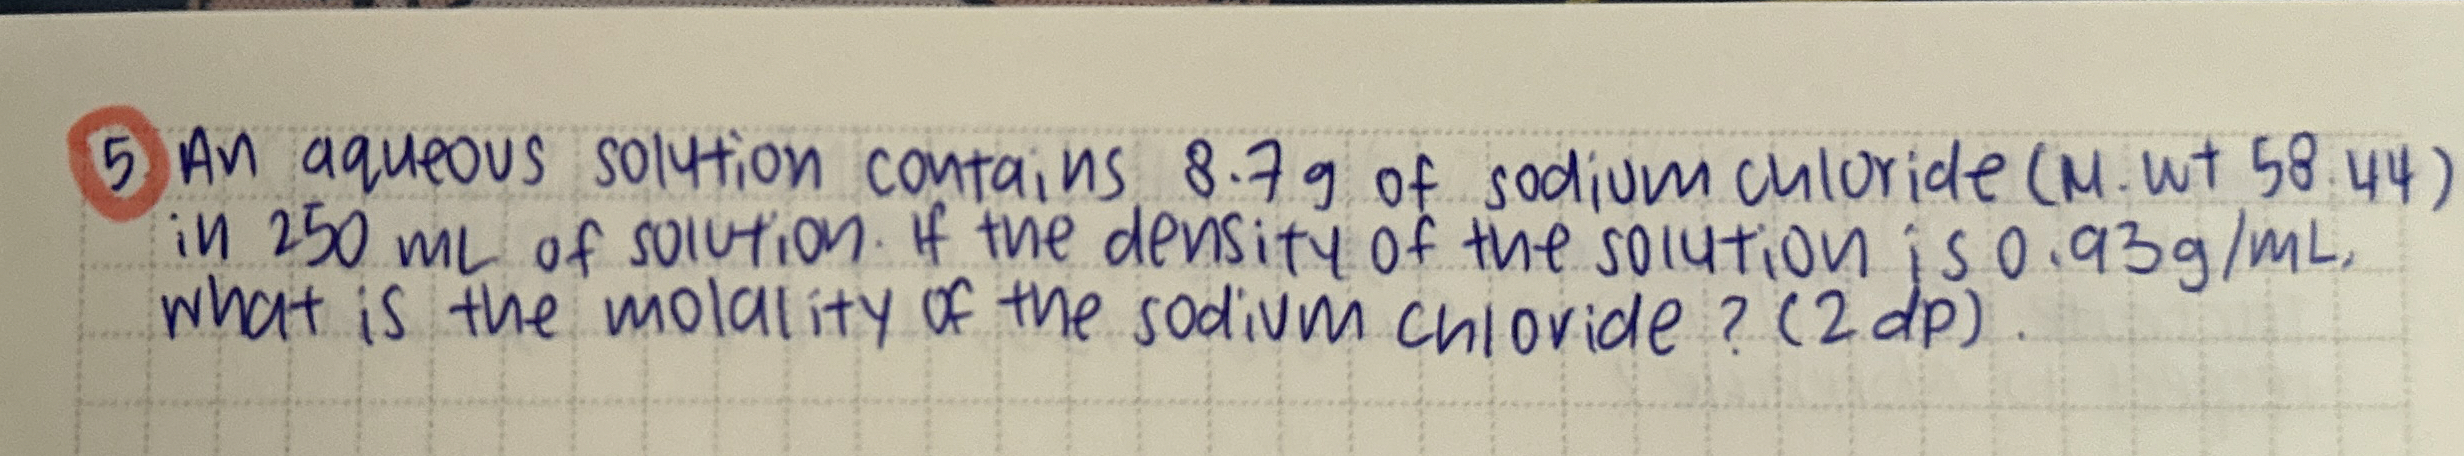 5 An aqueous solution contains 8.7g of sodium chloride (M.wt 58.44)
in 250 mL of solution. If the density of the solution is 0.93g/mL,
what is the molality of the sodium chloride? (2 dp).